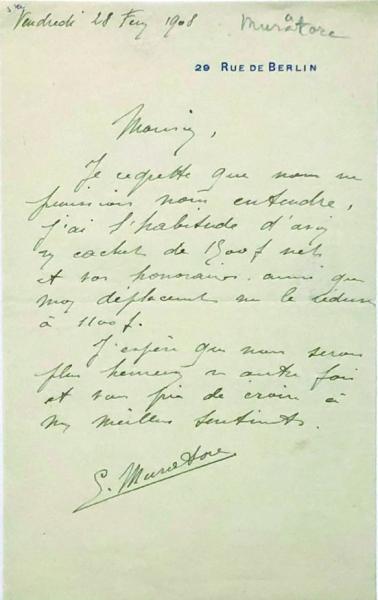 Vendredi 28 Fev 1908
Muratore
29 RUE DE BERLIN
Monsieur,
Je regrette que nous ne
puissions nous entendre,
j'ai l'habitude d'avoir
cachet de 1500 f nets
et vos honoraires ainsi que
mon déplacement me le réduisent
à 1100 f.
J'espère que nous serons
plus heureux une autre fois
et vous prie de croire à
mes meilleurs sentiments.
L. Muratore